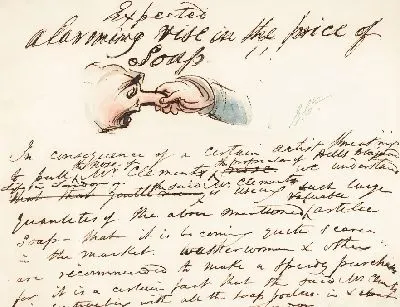 Expected
alarming rise in the price of
Soap !!
In consequence of a certain artist threatning
to pull the Nose of Mr Clements the proprietor of Bells
Mr Clements we understand
is using such large
quantetes of the above mentioned valuable article
Soap - that it is becoming quite scarce
in the market. washerwomen & others
are recommended to make a speedy purchase
for it is a certain fact that the said Mr Clements
with all the soap